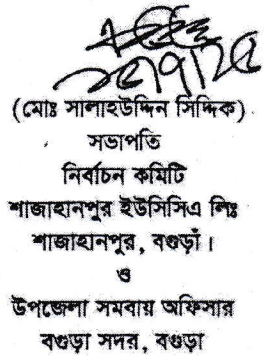 (মোঃ সালাহউদ্দিন সিদ্দিক)
সভাপতি
নির্বাচন কমিটি
শাজাহানপুর ইউসিসিএ লিঃ
শাজাহানপুর, বগুড়াঁ।
ও
উপজেলা সমবায় অফিসার
বগুড়া সদর, বগুড়া